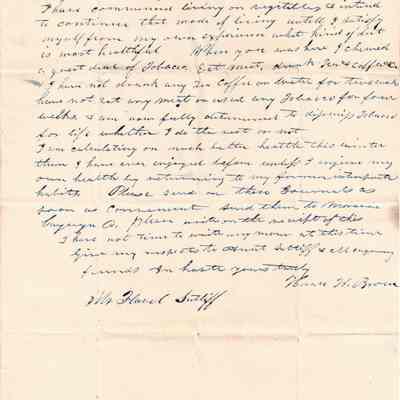 I have commenced living on vegitables & intend
to continue that mode of living untill I satisfy
myself from my own experience what kind of diet
is most healthful When you was here I chewed
a great deal of Tobacco Eat meat, drank Tea & Coffee &c
I have not drank any Tea Coffee or Water for two weeks
have not eat any meat or used any Tobacco for four
weeks & am now fully determined to dispense Tobacco
for life whether I do the rest or not
I am calculating on much better health this winter
than I have ever enjoyed before unless I injure my
own health by returning to my former intemperate
habits Please send on those Journals as
soon as convenient send them to Monroe
Co. Please write on the receipt of this
I have not time to write any more at this time
Give my respects to Aunt Sutliff & all enquiring
friends In haste yours truly
H. Brown
Mr Flavel Sutliff